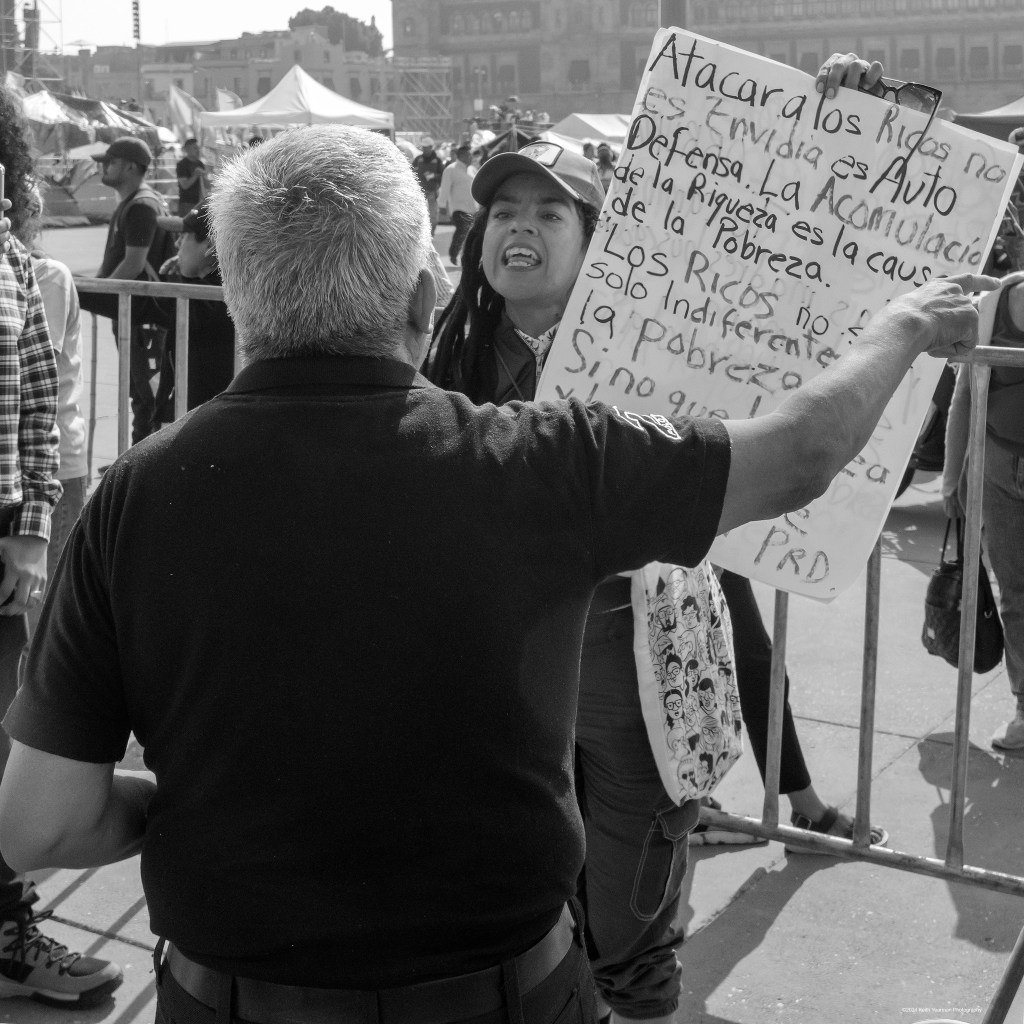 Atacar a los Ricos no
es Envidia es Auto
Defensa. La Acomulació
de la Riqueza es la caus
de la Pobreza.
Los Ricos no s
solo Indiferente
la Pobreza
Si no que l
PRD